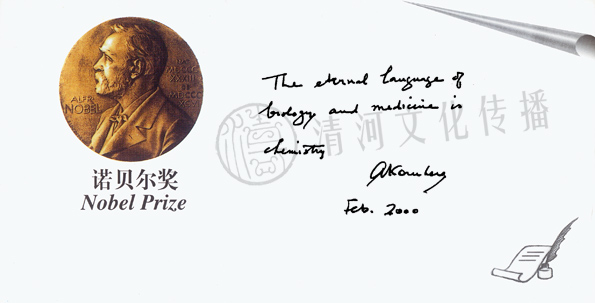 ALFR.
NOBEL
诺贝尔奖
Nobel Prize
The eternal language of
biology and medicine is
chemistry
AKornberg
Feb. 2000
清河文化传播